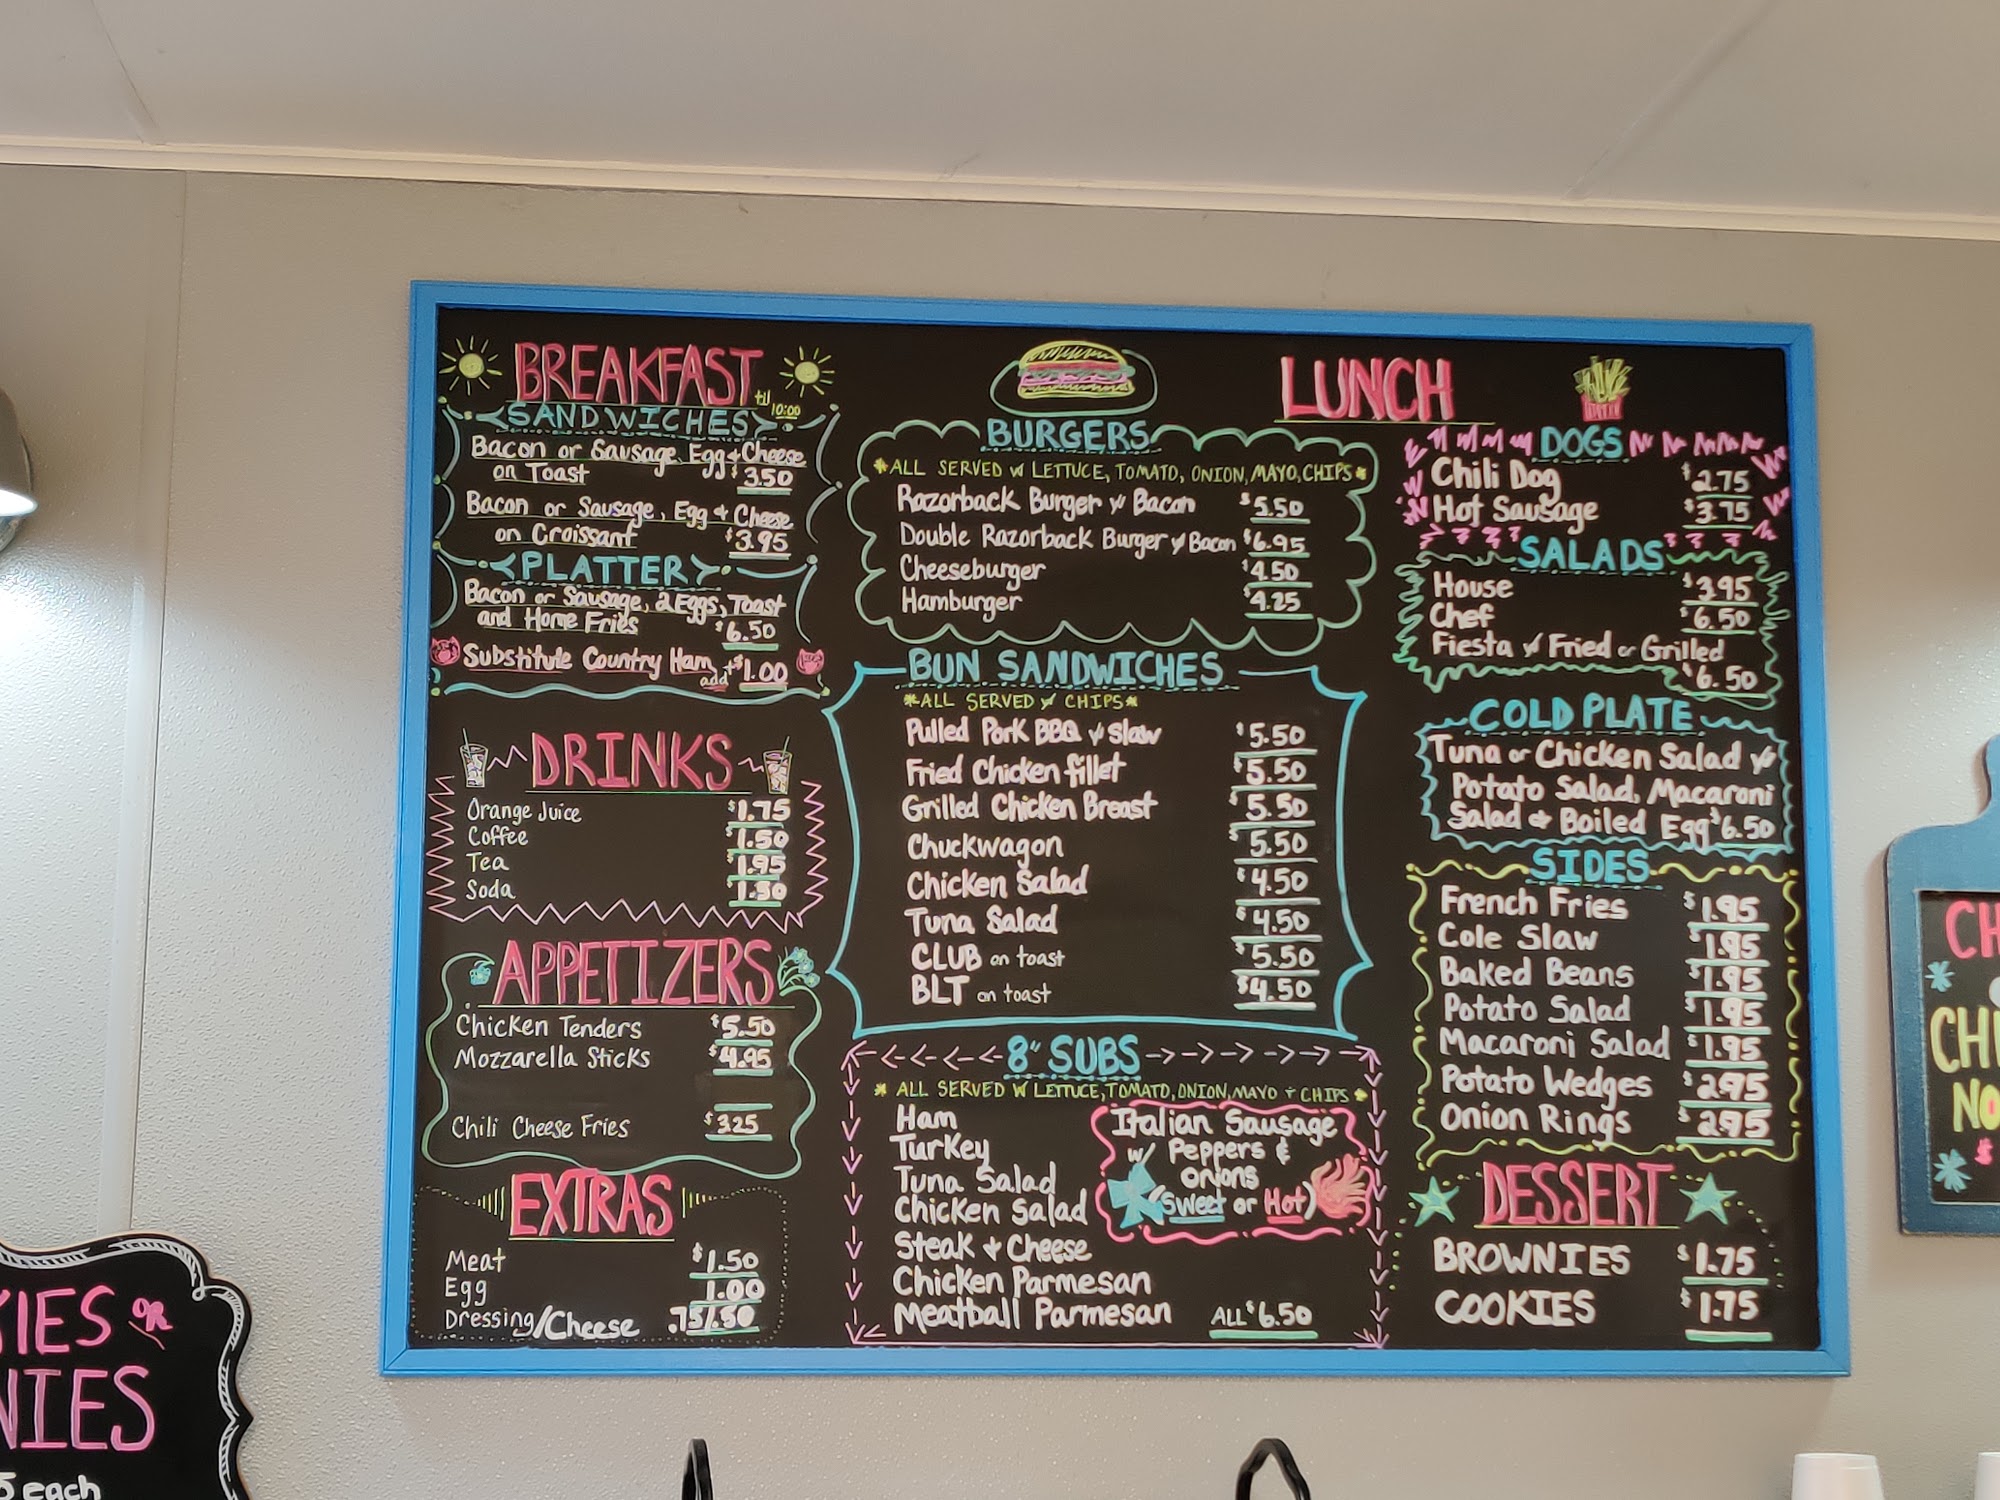 BREAKFAST til 10:00
SANDWICHES
Bacon or Sausage, Egg + Cheese
on Toast $3.50
Bacon or Sausage, Egg + Cheese
on Croissant $3.95
PLATTER
Bacon or Sausage, 2 Eggs, Toast
and Home Fries $6.50
Substitute Country Ham add +$1.00
DRINKS
Orange Juice $1.75
Coffee $1.50
Tea $1.95
Soda $1.50
APPETIZERS
Chicken Tenders $5.50
Mozzarella Sticks $4.95
Chili Cheese Fries $3.25
EXTRAS
Meat $1.50
Egg 1.00
Dressing/Cheese .75/.50
LUNCH
BURGERS
*ALL SERVED W LETTUCE, TOMATO, ONION, MAYO, CHIPS*
Razorback Burger w/ Bacon $5.50
Double Razorback Burger w/ Bacon $6.95
Cheeseburger $4.50
Hamburger $4.25
BUN SANDWICHES
*ALL SERVED w/ CHIPS*
Pulled Pork BBQ w/ Slaw $5.50
Fried Chicken fillet $5.50
Grilled Chicken Breast $5.50
Chuckwagon $5.50
Chicken Salad $4.50
Tuna Salad $4.50
CLUB on toast $5.50
BLT on toast $4.50
8" SUBS
* ALL SERVED W LETTUCE, TOMATO, ONION, MAYO + CHIPS *
Ham
Turkey
Tuna Salad
Chicken Salad
Steak + Cheese
Chicken Parmesan
Meatball Parmesan ALL $6.50
Italian Sausage
w/ Peppers &
onions
(Sweet or Hot)
DOGS
Chili Dog $2.75
Hot Sausage $3.75
SALADS
House $3.95
Chef $6.50
Fiesta w/ Fried or Grilled
$6.50
COLD PLATE
Tuna or Chicken Salad w/
Potato Salad, Macaroni
Salad & Boiled Egg $6.50
SIDES
French Fries $1.95
Cole Slaw $1.95
Baked Beans $1.95
Potato Salad $1.95
Macaroni Salad $1.95
Potato Wedges $2.95
Onion Rings $2.95
DESSERT
BROWNIES $1.75
COOKIES $1.75
KIES OR
NIES
5 each
CH
CHI
NO
$